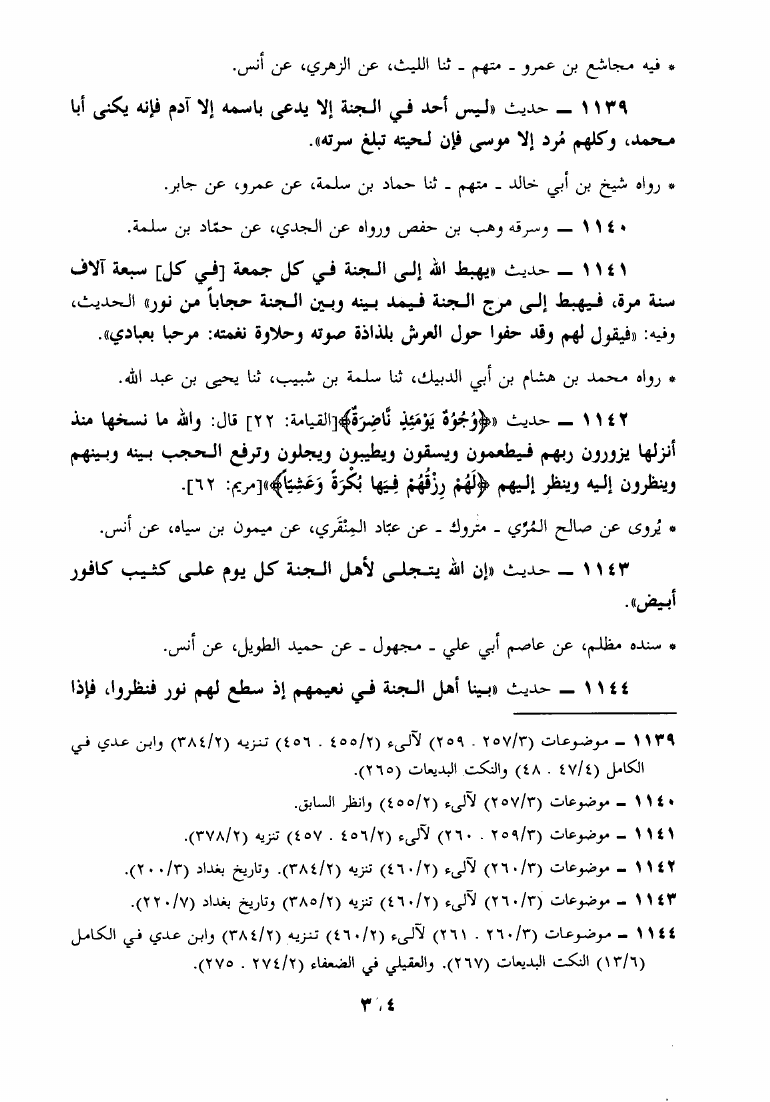 * فيه مجاشع بن عمرو - متهم - ثنا الليث، عن الزهري، عن أنس.
١١٣٩ – حديث «ليس أحد في الجنة إلا يدعى باسمه إلا آدم فإنه يكنى أبا
محمد، وكلهم مُرد إلا موسى فإن لحيته تبلغ سرته».
* رواه شيخ بن أبي خالد - متهم - ثنا حماد بن سلمة، عن عمرو، عن جابر.
١١٤٠ – وسرقه وهب بن حفص ورواه عن الجدي، عن حمّاد بن سلمة.
١١٤١ – حديث «يهبط الله إلى الجنة في كل جمعة [في كل] سبعة آلاف
سنة مرة، فيهبط إلى مرج الجنة فيمد بينه وبين الجنة حجاباً من نور» الحديث،
وفيه: «فيقول لهم وقد حفوا حول العرش بلذاذة صوته وحلاوة نغمته: مرحبا بعبادي».
* رواه محمد بن هشام بن أبي الدبيك، ثنا سلمة بن شبيب، ثنا يحيى بن عبد الله.
١١٤٢ – حديث «﴿وُجُوهٌ يَوْمَئِذٍ نَّاضِرَةٌ﴾[القيامة: ٢٢] قال: والله ما نسخها منذ
أنزلها يزورون ربهم فيطعمون ويسقون ويطيبون ويجلون وترفع الحجب بينه وبينهم
وينظرون إليه وينظر إليهم ﴿لَهُمْ رِزْقُهُمْ فِيهَا بُكْرَةً وَعَشِيّاً﴾»[مريم: ٦٢].
* يُروى عن صالح المُرِّي - متروك - عن عبّاد المِنْقَري، عن ميمون بن سياه، عن أنس.
١١٤٣ – حديث «إن الله يتجلى لأهل الجنة كل يوم على كثيب كافور
أبيض».
* سنده مظلم، عن عاصم أبي علي - مجهول - عن حميد الطويل، عن أنس.
١١٤٤ – حديث «بينا أهل الجنة في نعيمهم إذ سطع لهم نور فنظروا، فإذا
١١٣٩ – موضوعات (٢٥٧/٣ . ٢٥٩) لآلىء (٤٥٥/٢ . ٤٥٦) تنزيه (٣٨٤/٢) وابن عدي في
الكامل (٤٧/٤ . ٤٨) والنكت البديعات (٢٦٥).
١١٤٠ – موضوعات (٢٥٧/٣) لآلىء (٤٥٥/٢) وانظر السابق.
١١٤١ – موضوعات (٢٥٩/٣ . ٢٦٠) لآلىء (٤٥٦/٢ . ٤٥٧) تنزيه (٣٧٨/٢).
١١٤٢ – موضوعات (٢٦٠/٣) لآلىء (٤٦٠/٢) تنزيه (٣٨٤/٢). وتاريخ بغداد (٢٠٠/٣).
١١٤٣ – موضوعات (٢٦٠/٣) لآلىء (٤٦٠/٢) تنزيه (٣٨٥/٢) وتاريخ بغداد (٢٢٠/٧).
١١٤٤ – موضوعات (٢٦٠/٣ . ٢٦١) لآلىء (٤٦٠/٢) تنزيه (٣٨٤/٢) وابن عدي في الكامل
(١٣/٦) النكت البديعات (٢٦٧). والعقيلي في الضعفاء (٢٧٤/٢ . ٢٧٥).
٣٠٤